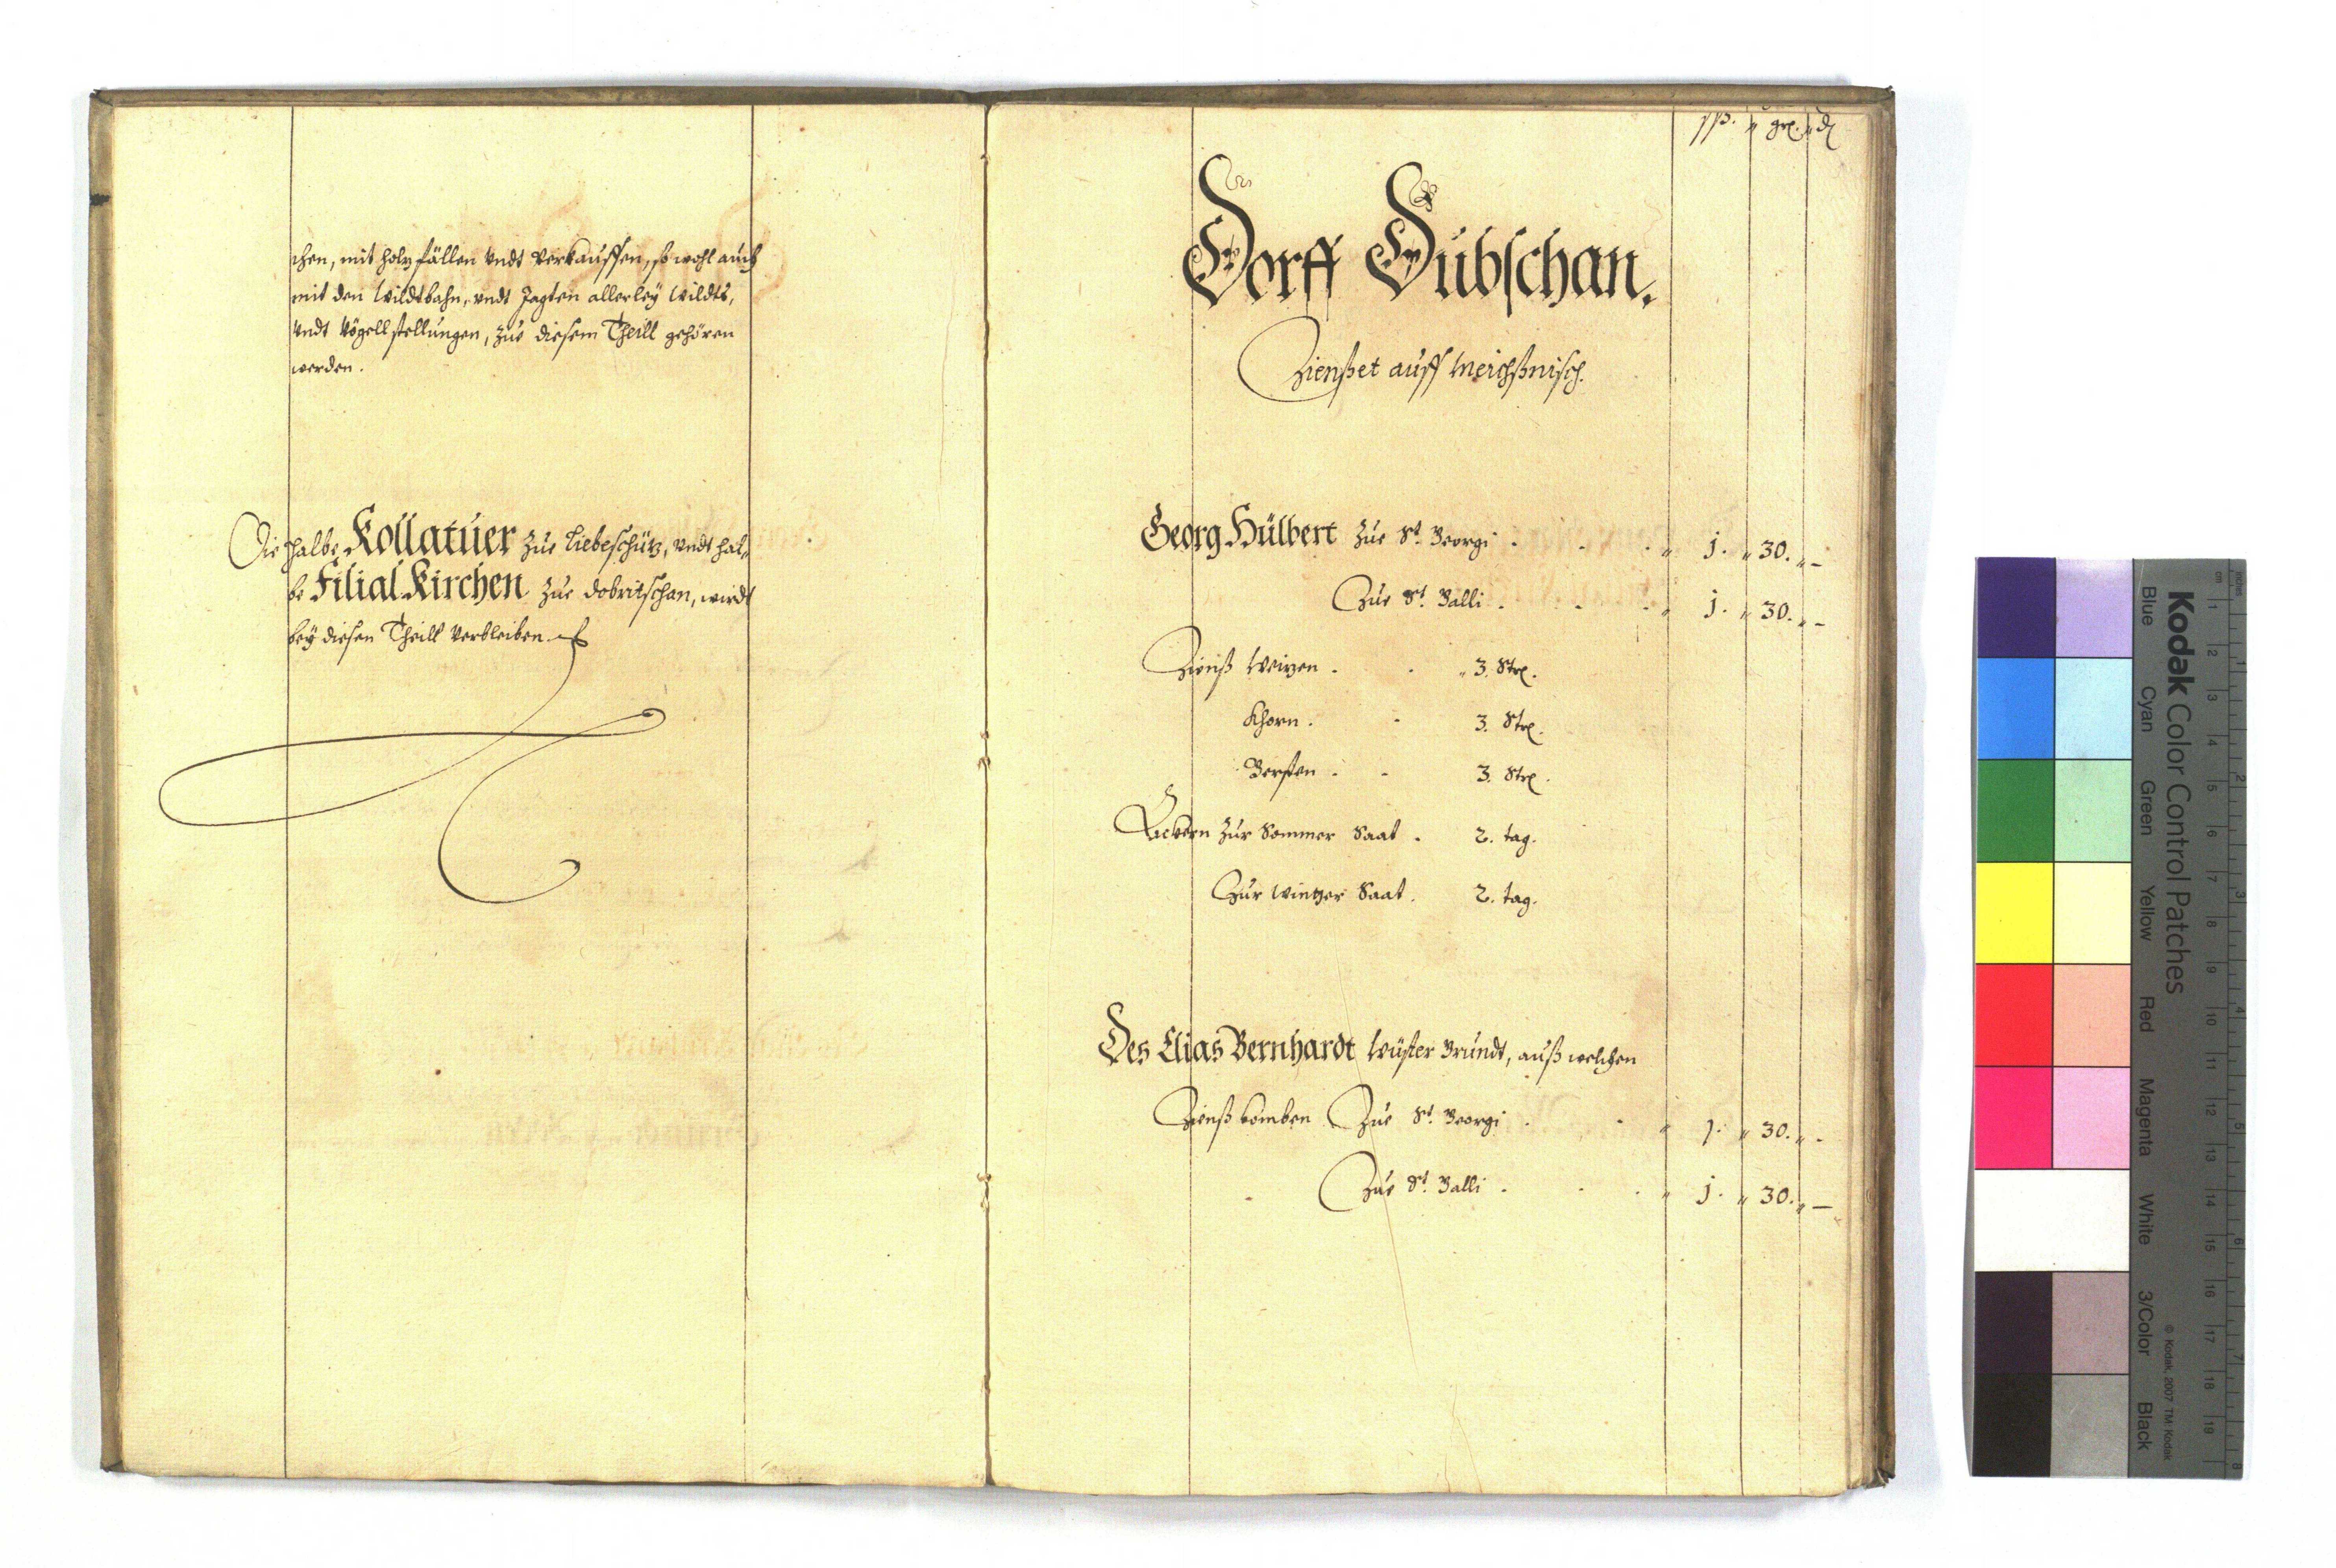 chen, mit holzfällen vndt verkauffen, so wohl auch
mit den Wildtbahn, vndt Jagten allerleÿ Wildts,
vndt Vögellstellungen, zue diesem Theill gehören
werden.
Die halbe Kollatuer zue Liebeschütz, vndt hal-
be Filial Kirchen zue Dobritschan, wirdt
beÿ diesen Theill verbleiben.
ßß. gr. d
Dorff Dubschan.
Zienßet auff Meichßnisch.
Georg Hülbert zue St. Georgi . . . " j. " 30. " -
Zue St. Galli . . . " j. " 30. " -
Zienß Weitzen . . " 3. Str.
Khorn . . 3. Str.
Gersten . . 3. Str.
Ackern zur Sommer Saat . 2. tag.
Zur Wintter Saat . 2. tag.
Des Elias Bernhardt Wüster Grundt, auß welchen
Zienß komben Zue St. Georgi . . " j. " 30. " -
Zue St. Galli . . . " j. " 30. " -
Kodak Color Control Patches
Blue Cyan Green Yellow Red Magenta White 3/Color Black
© Kodak, 2007 TM: Kodak
inches 1 2 3 4 5 6 7 8
cm 1 2 3 4 5 6 7 8 9 10 11 12 13 14 15 16 17 18 19